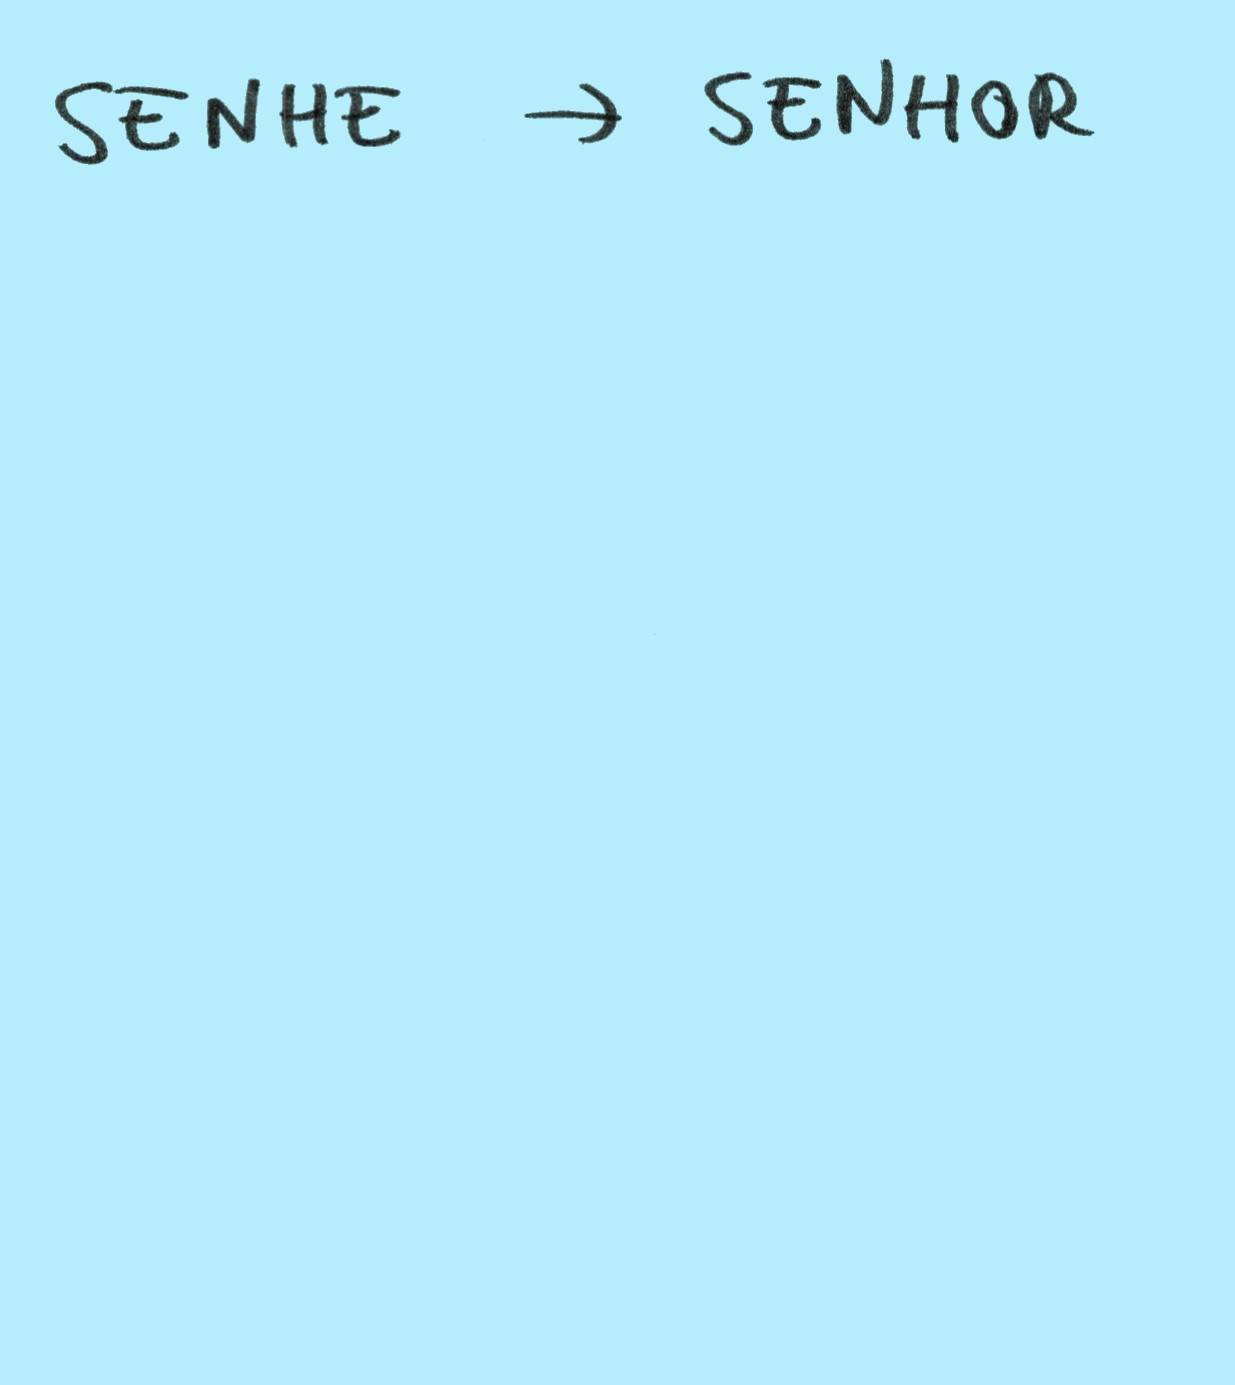 SENHE → SENHOR